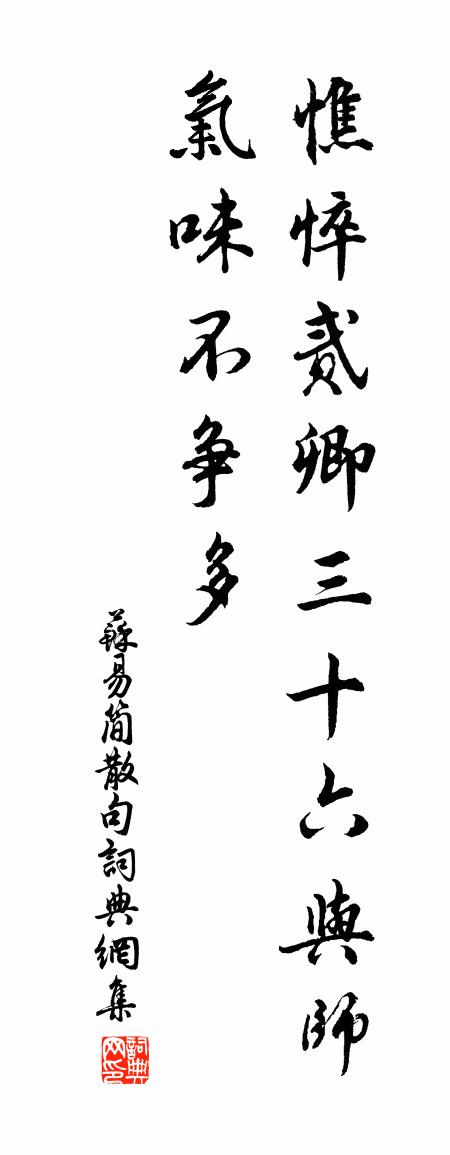 憔悴貳卿三十六與師
氣味不争多
蘇易简散句詞典網集
詞典网印